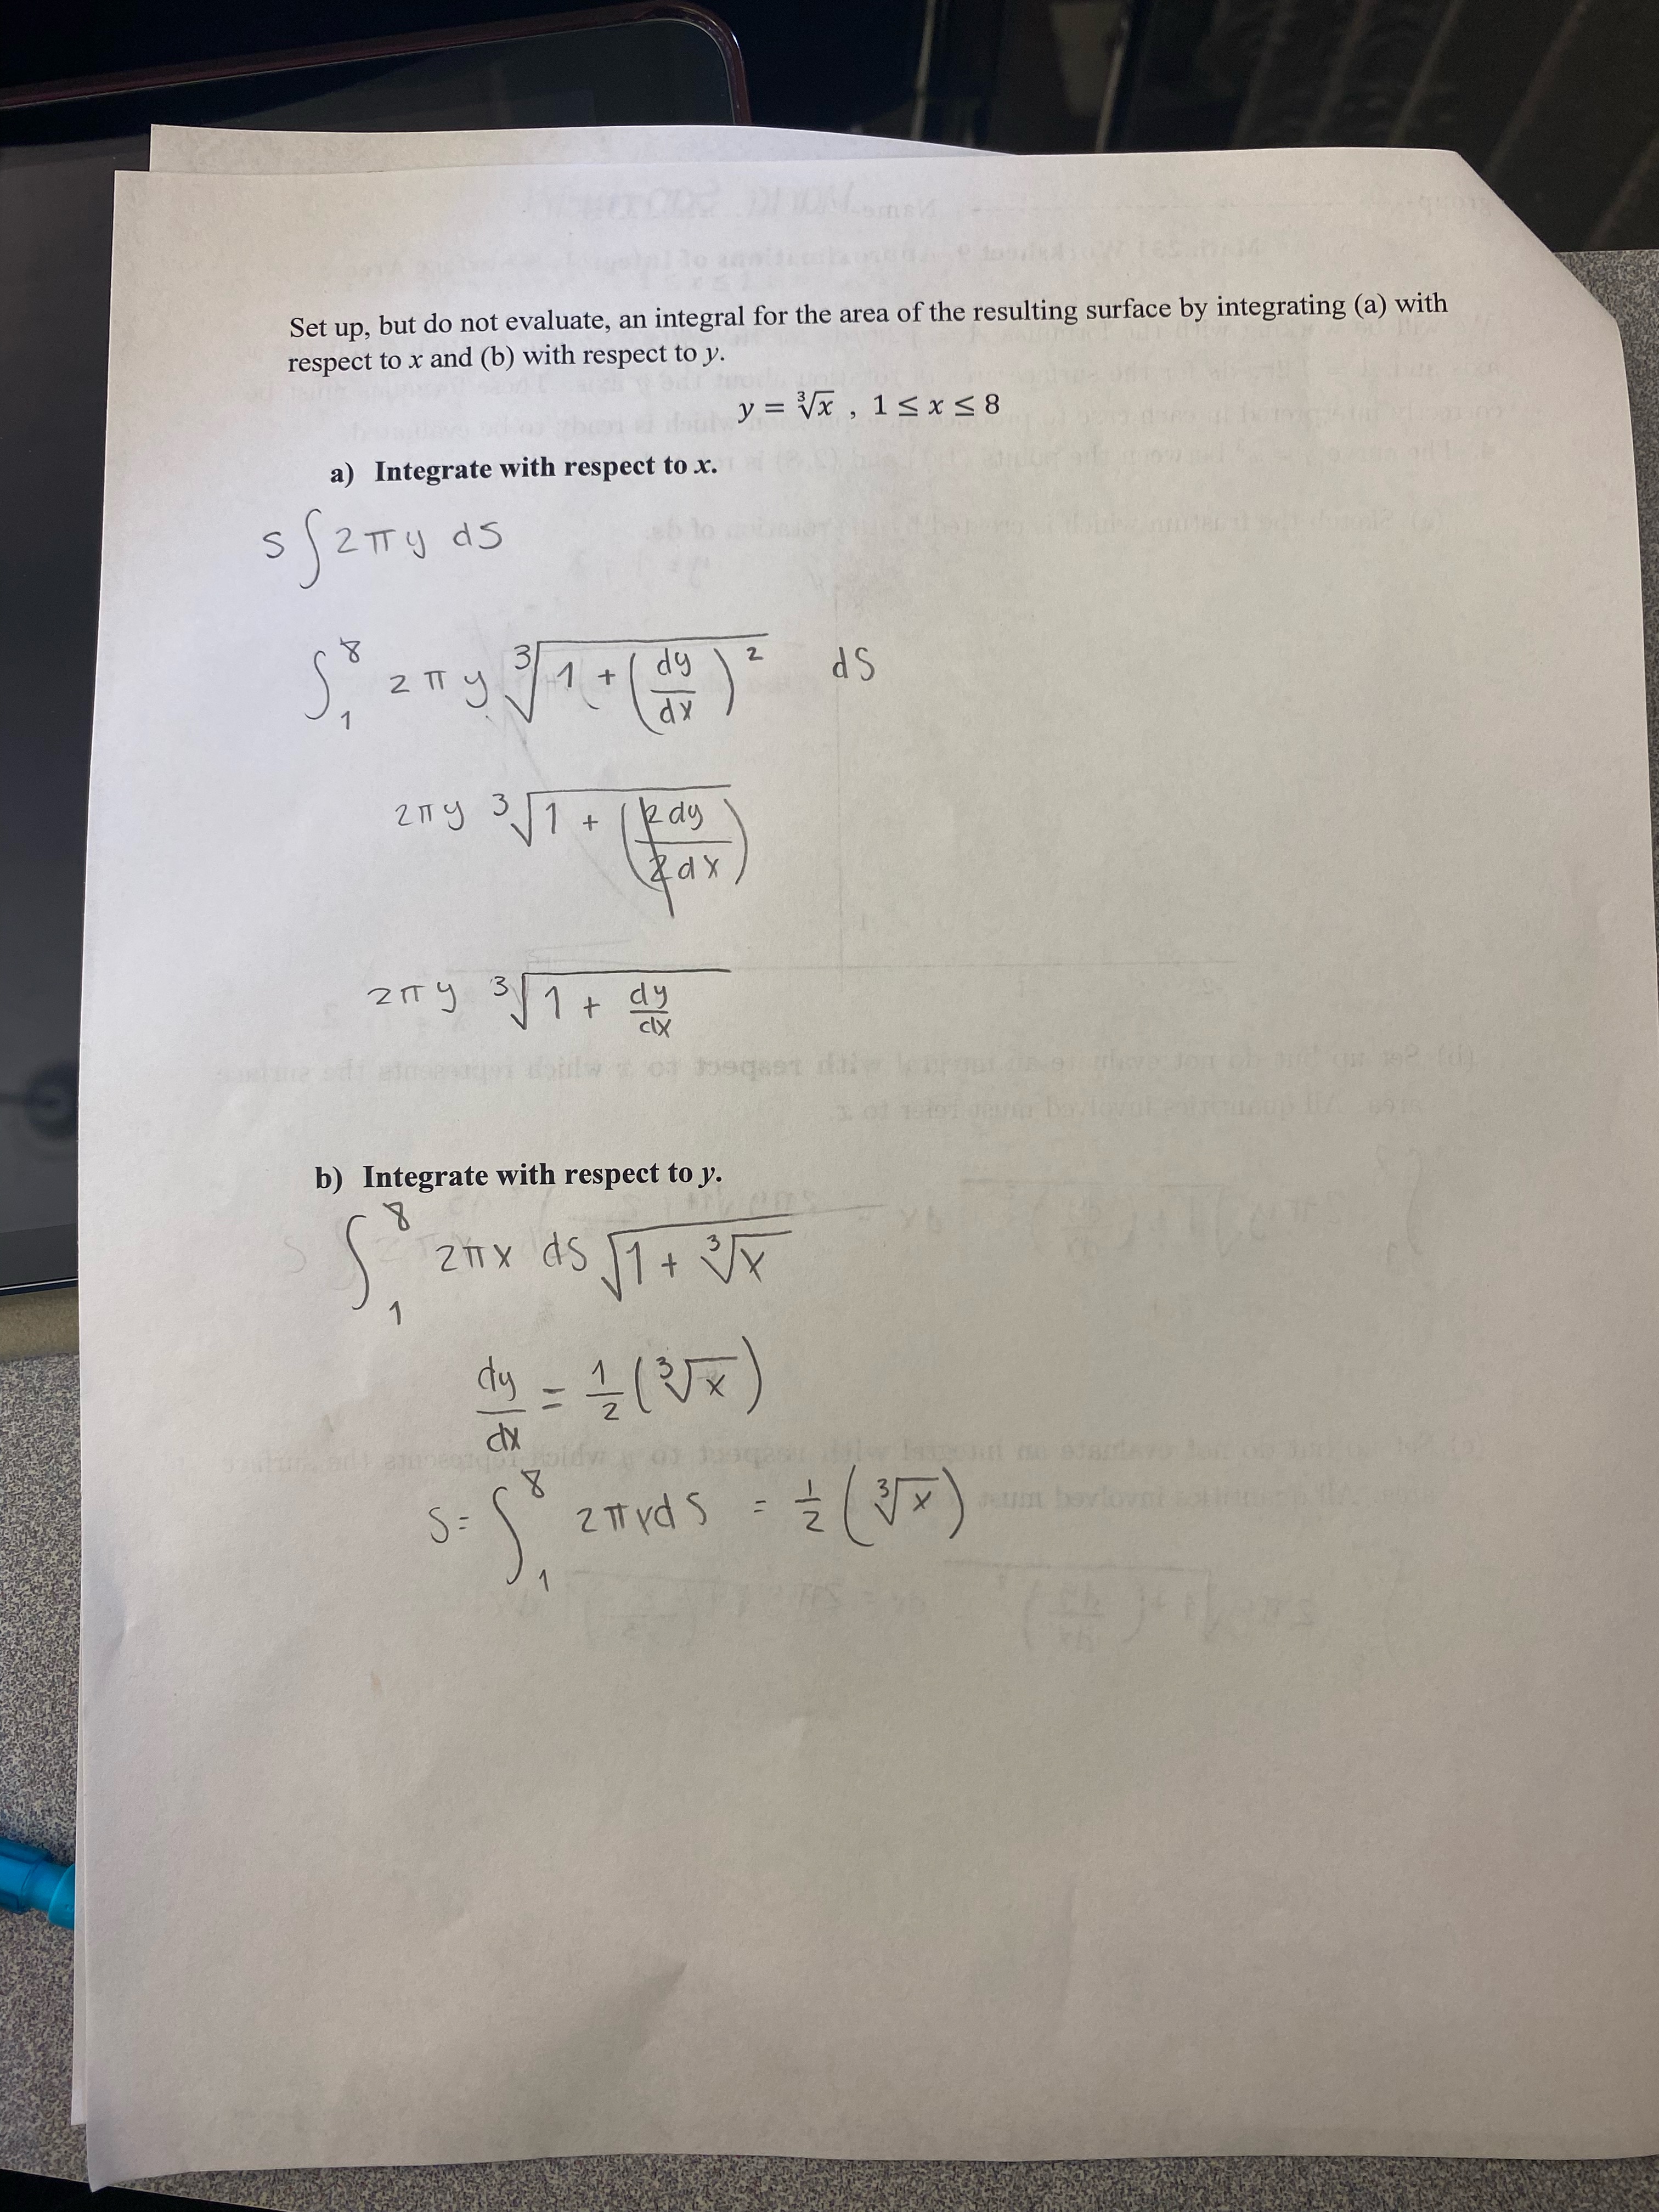 Set up, but do not evaluate, an integral for the area of the resulting surface by integrating (a) with
respect to x and (b) with respect to y.
y = ∛x , 1 ≤ x ≤ 8
a) Integrate with respect to x.
S ∫ 2πy dS
∫₁⁸ 2πy ∛(1 + (dy/dx)²) dS
2πy ∛(1 + (2dy/2dx))
2πy ∛(1 + dy/dx)
b) Integrate with respect to y.
∫₁⁸ 2πx dS √(1 + ∛x)
dy/dx = 1/2 (∛x)
S = ∫₁⁸ 2πxdS = 1/2 (∛x)